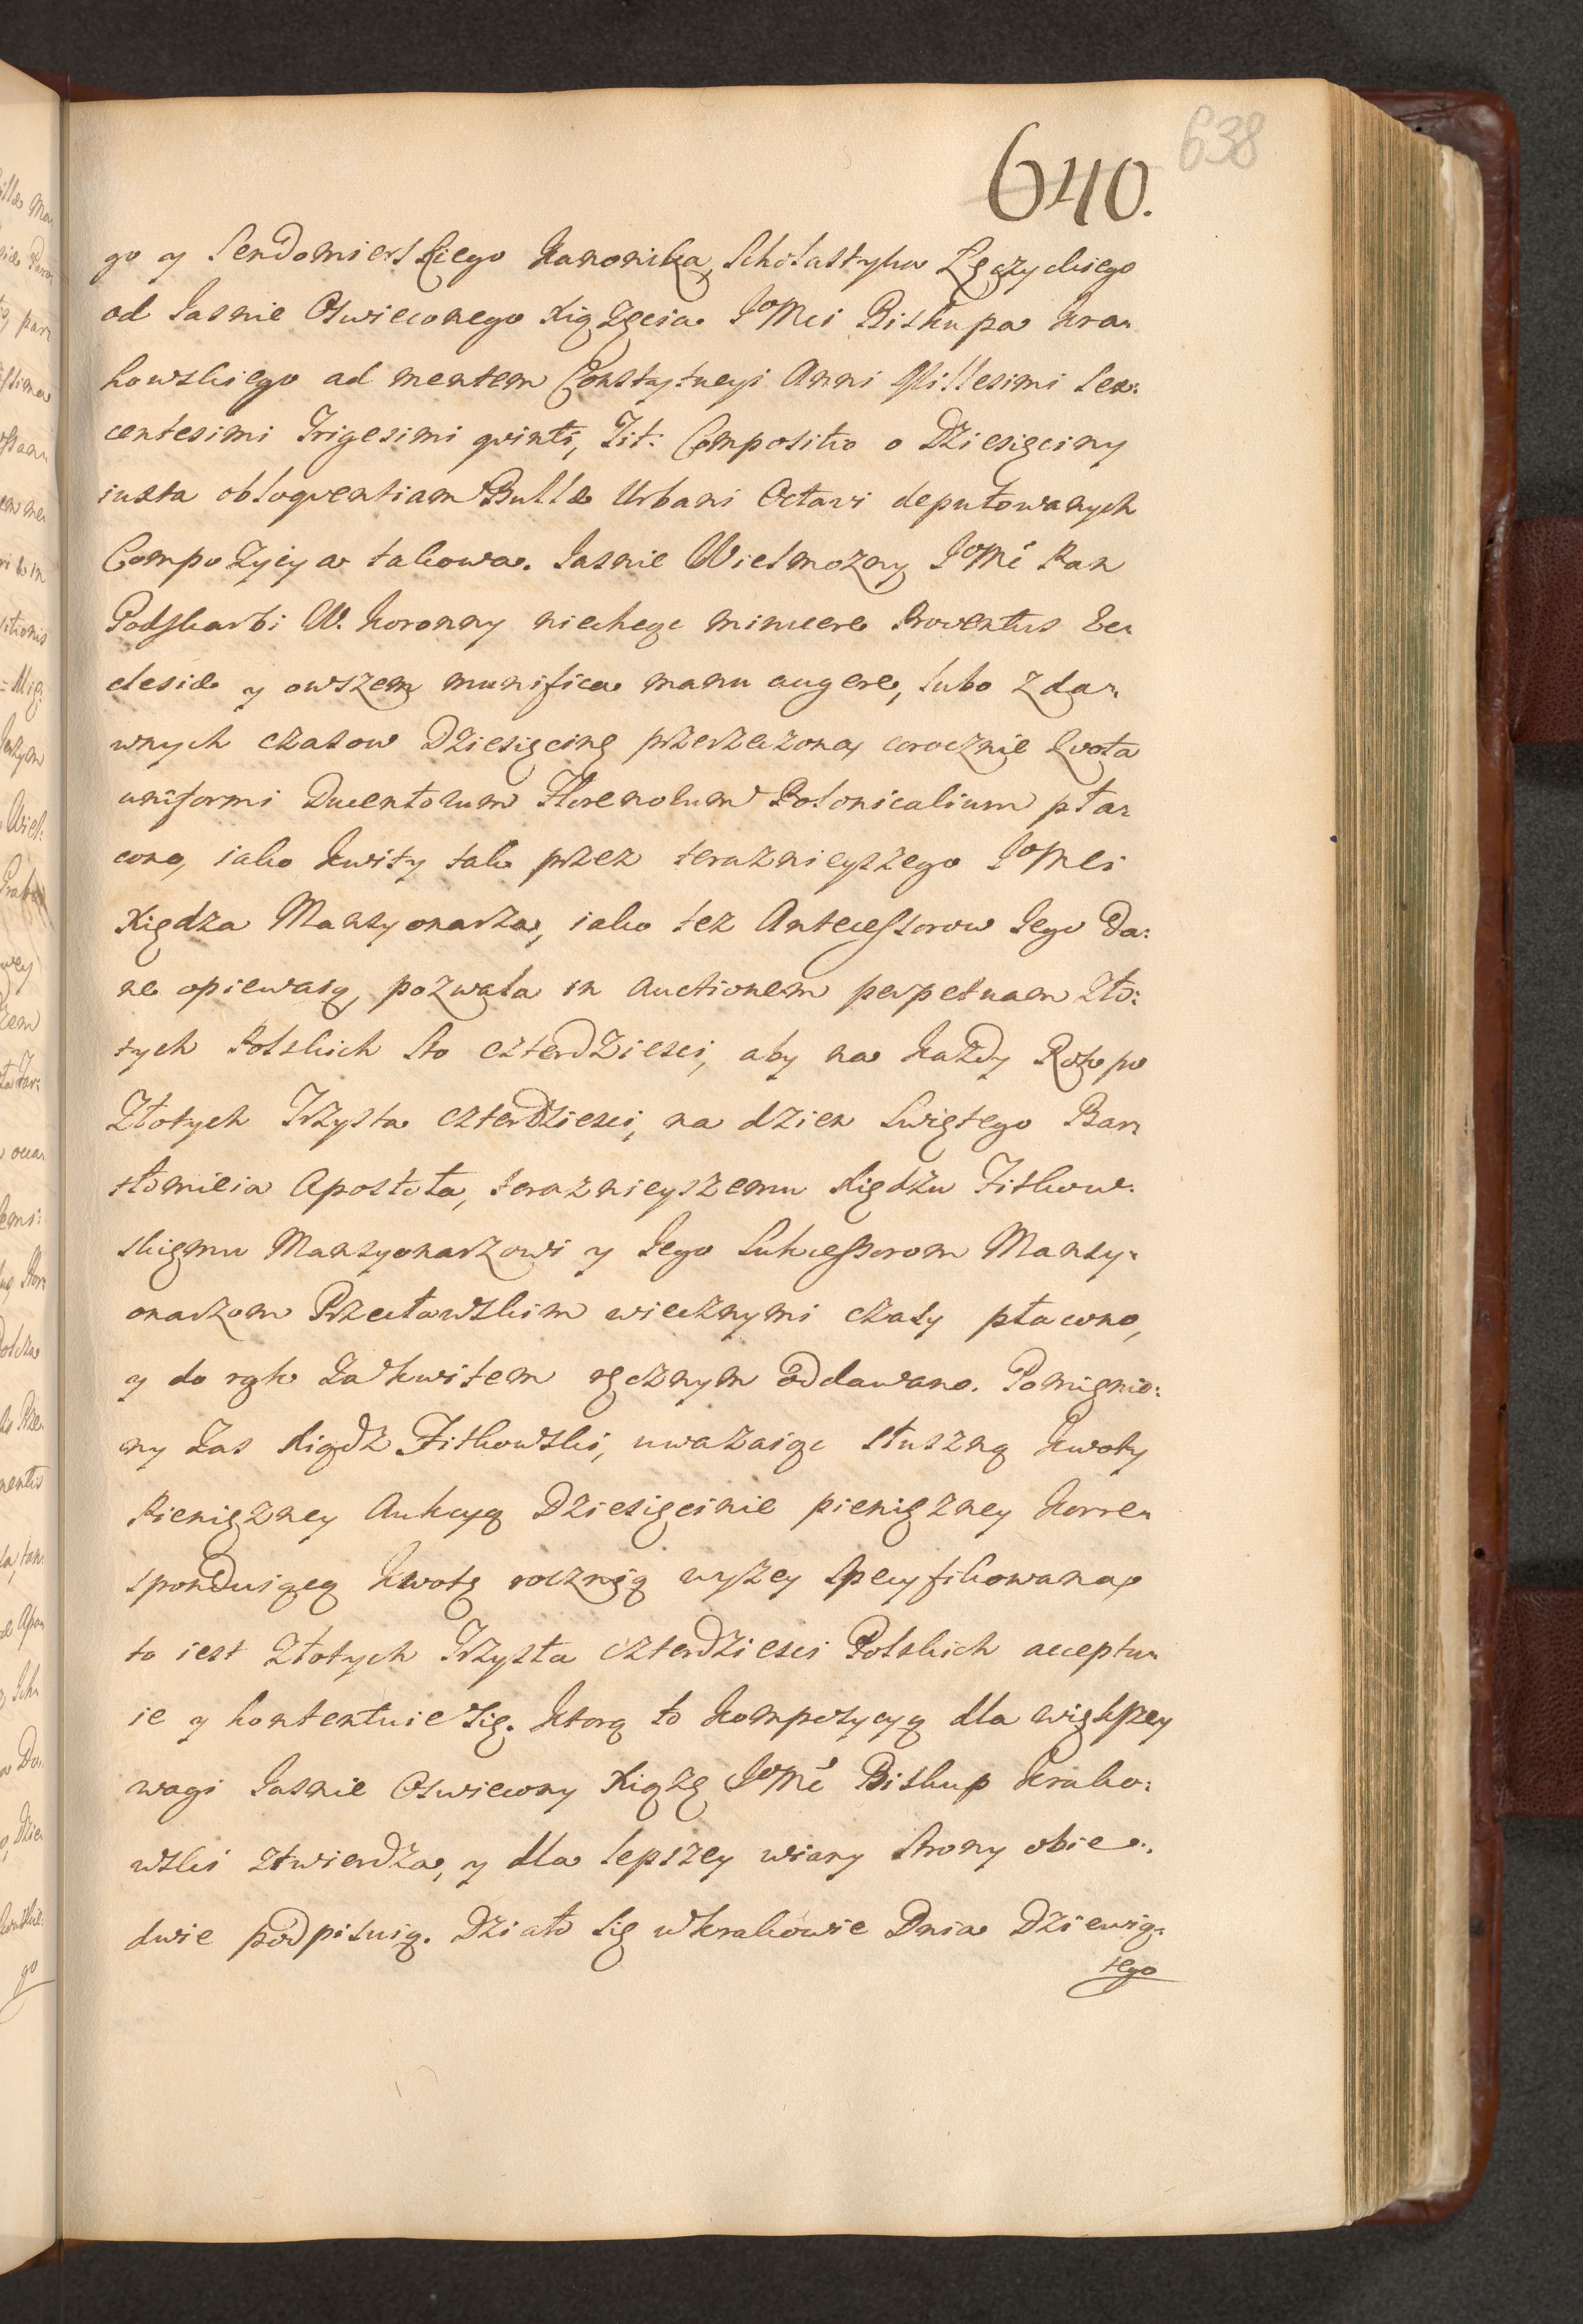 638
640.
go y Sendomierskiego Kanonika, Scholastyka Łęczyckiego
od Jasnie Oswieconego Xiążęcia JoMci Biskupa Kra-
kowskiego ad mentem Constytucyi Anni Millesimi Sex:
centesimi Trigesimi qvinti, Tit: Compositio o Dziesięciny
iuxta obloqventiam Bullæ Urbani Octavi deputowanych
Compozycya takowa. Jasnie Wielmozny JoMć Pan
Podskarbi W. Koronny niechcąc minuere Proventus Ec-
clesiæ y owszem munifica manu augere, lubo z da-
wnych czasow Dziesięcinę przerzeczoną corocznie Qvota
uniformi Ducentorum Florenorum Polonicalium pła-
cono, iako Kwity tak przez teraznieyszego JoMci
Xiędza Mansyonarza, iako tez Antecessorow Jego Da:
ne opiewaią, pozwala in auctionem perpetuam Zło:
tych Polskich sto czterdziesci, aby na kazdy Rok po
Złotych Trzysta czterdziesci, na dzien Swiętego Bar-
tłomieia Apostoła, teraznieyszemu Xiędzu Fitkow-
skiemu Mansyonarzowi y Jego Sukcessorom Mansy-
onarzom Przecławskim wiecznymi czasy płacono,
y do rąk za kwitem ręcznym oddawano. Pomienio:
ny zas Xiądz Fitkowski, uwazaiąc słuszną kwoty
Pieniązney Aukcyą Dziesięcinie pieniązney korre-
sponduiącą kwotę roczną wyzey specyfikowaną,
to iest Złotych Trzysta czterdziesci Polskich acceptu-
ie y kontentuie się. Ktorą to kompozycyą dla większey
wagi Jasnie Oswiecony Xiążę JoMć Biskup Krako:
wski ztwierdza, y dla lepszey wiary strony obie-
dwie podpisuią. Działo się w Krakowie Dnia Dziewią-
tego